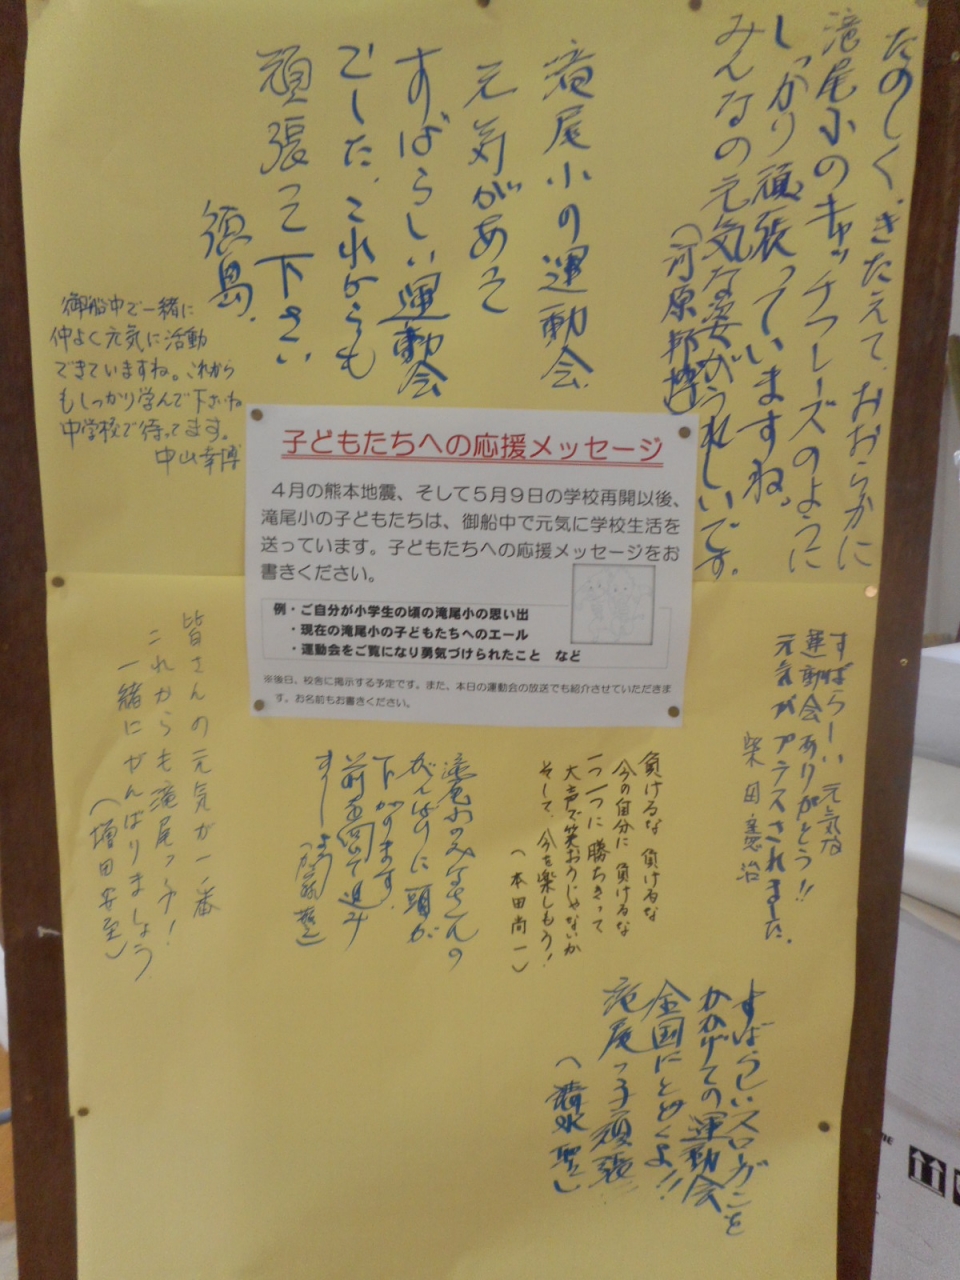 たのしく、きたえて、おおらかに
滝尾小のキャッチフレーズのように
しっかり頑張っていますね。
みんなの元気な姿がうれしいです。
滝尾小の運動会
元気があって
すばらしい運動会
でした。これからも
頑張って下さい
徳島.
御船中で一緒に
仲よく元気に活動
できていますね。これから
もしっかり学んで下さいね
中学校で待ってます。
中山幸博
子どもたちへの応援メッセージ
4月の熊本地震、そして5月9日の学校再開以後、
滝尾小の子どもたちは、御船中で元気に学校生活を
送っています。子どもたちへの応援メッセージをお
書きください。
例・ご自分が小学生の頃の滝尾小の思い出
・現在の滝尾小の子どもたちへのエール
・運動会をご覧になり勇気づけられたこと など
※後日、校舎に掲示する予定です。また、本日の運動会の放送でも紹介させていただきま
す。お名前もお書きください。
すばらしい元気な
運動会ありがとう!!
元気がプラスされました。
柴田憲治
負けるな 負けるな
今の自分に 負けるな
一つ一つに 勝ちきって
大声で笑おうじゃないか
そして、今を楽しもう!
(本田尚一)
滝尾小のみなさんの
がんばりに頭が
下がります。
前を向いて進み
ましょう
皆さんの元気が一番
これからも滝尾っ子!
一緒にがんばりましょう
すばらしいスローガンを
かかげての運動会
全国にとどくよ!!
滝尾っ子頑張